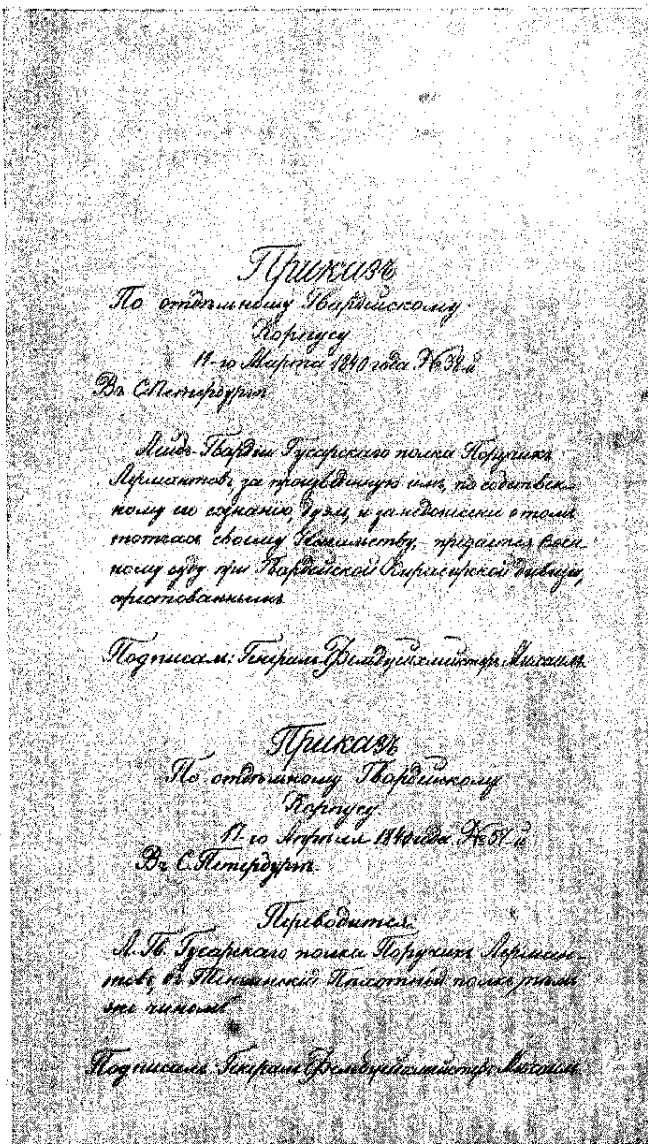 Приказъ
По отдѣльному Гвардейскому
Корпусу
го Марта 1840 года №
Въ С.Петербургѣ
Лейбъ-Гвардіи Гусарскаго полка Поручикъ
Лермантовъ за произведенную имъ, по собствен-
ному его сознанію, дуэль, и за недонесеніе о томъ
тотчасъ своему Начальству, - предается воен-
ному суду при Гвардейской Кирасирской дивизіи,
арестованнымъ
Подписалъ: Генералъ Фельдцейхмейстеръ Михаилъ.
Приказъ
По отдѣльному Гвардейскому
Корпусу
го Апрѣля 1840 года №
Въ С.Петербургѣ.
Переводится:
Л. Гв. Гусарскаго полка Поручикъ Лерман-
товъ, въ Тенгинскій Пѣхотный полкъ, тѣмъ
же чиномъ
Подписалъ: Генералъ Фельдцейхмейстеръ Михаилъ.